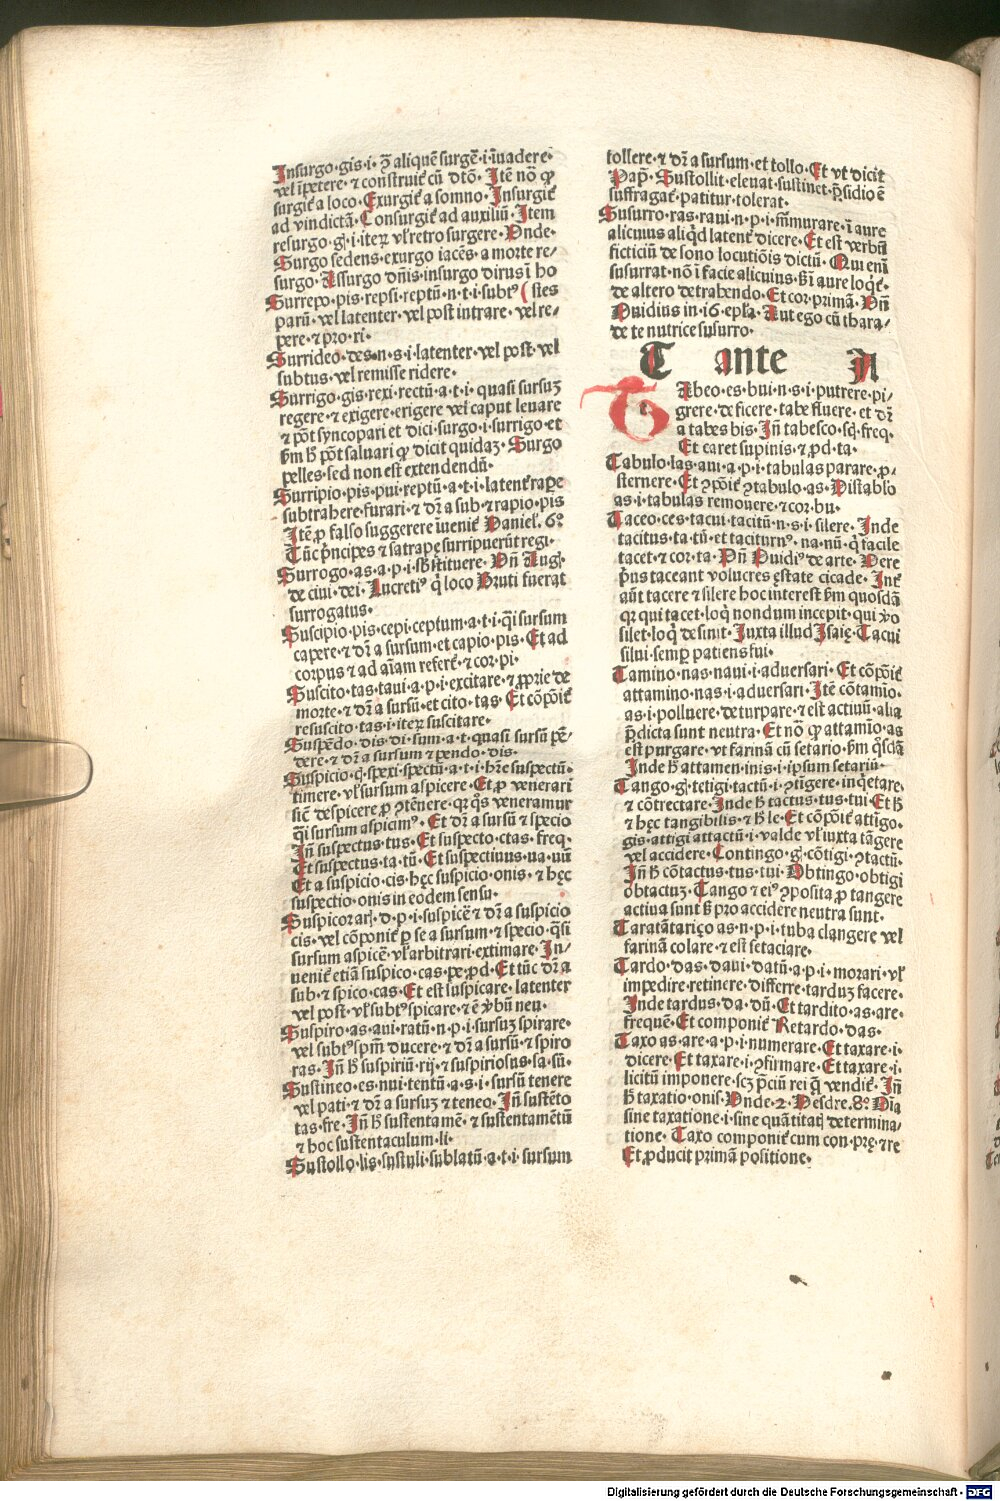 Insurgo·gis·i·ꝯ̄ aliquē surgē·i·īuadere·
vel īpetere·⁊ construit̄ cū dtō· Itē nō ꝙ
surgit̄ a loco·Exurgit̄ a somno·Insurgit̄
ad vindictā·Consurgit̄ ad auxiliū·Item
resurgo·gꝭ·i·iteꝝ vl̓ retro surgere·Vnde·
Surgo sedens·exurgo iacēs·a morte re/
surgo·Assurgo dn̄is·insurgo dirus ī ho
Surrepo·pis·repsi·reptū·n·t·i·subtꝰ (stes
parū·vel latenter·vel post intrare·vel re/
pere·⁊ pro·ri·
Surrideo·des·n·s·i·latenter·vel post·vel
subtus·vel remisse ridere·
Surrigo·gis·rexi·rectū·a·t·i·quasi sursuꝫ
regere·⁊ exigere·erigere vel caput leuare
⁊ pōt syncopari et dici·surgo·i·surrigo·et
ẜm ħ pōt saluari ꝙ dicit quidaꝫ·Surgo
pelles·sed non est extendendū·
Surripio·pis·pui·reptū·a·t·i·latent̄ rape
subtrahere·furari·⁊ dr̄ a sub·⁊ rapio·pis
Itē ꝓ falso suggerere īuenit̄ Daniel·6°
Tūc p̄ncipes ⁊ satrapę surripuerūt regi·
Surrogo·as·a·p·i·sb̄stituere·Vn̄ Aug·
de ciui·dei·Lucretiꝰ q̄ loco Bruti fuerat
surrogatus·
Suscipio·pis·cepi·ceptum·a·t·i·q̄i sursum
capere·⁊ dr̄ a sursum·et capio·pis·Et ad
corpus ⁊ ad aīam refert̄·⁊ cor·pi·
Suscito·tas·taui·a·p·i·excitare·⁊ ꝓprie de
morte·⁊ dr̄ a sursū·et cito·tas·Et cōpōit̄
resuscito·tas·i·iteꝝ suscitare·
Suspēdo·dis·di·sum·a·t·quasi sursū pē/
dere·⁊ dr̄ a sursum ⁊ pendo·dis·
Suspicio·q̄·spexi·spectū·a·t·i·hr̄e suspectū·
timere·vl̓ sursum aspicere·Et ꝓ venerari
sic̄ despicere ꝓ ꝯtēnere·qꝛ q̄s veneramur
q̄i sursum aspicimꝰ·Et dr̄ a sursū ⁊ specio
In̄ suspectus·tus·Et suspecto·ctas·freq·
Et suspectus·ta·tū·Et suspectiuus·ua·uū
Et a suspicio·cis·hęc suspicio·onis·⁊ hęc
suspectio·onis in eodem sensu·
Suspicor·arꝭ·d·p·i·suspicē·⁊ dr̄ a suspicio
cis·vel cōponit̄ ꝑ se a sursum·⁊ specio q̄si
sursum aspicē·vl̓ arbitrari·extimare·In/
uenit̄ etiā suspico·cas·ꝑ·ꝓd·Et tūc dr̄ a
sub·⁊ spico·cas·Et est suspicare·latenter
vel post·vl̓ subtꝰ spicare·⁊ ē v̓bū neu·
Suspiro·as·aui·ratū·n·p·i·sursuꝫ spirare·
vel subtꝰ spm̄ ducere·⁊ dr̄ a sursū·⁊ spiro
ras·In̄ ħ suspiriū·rij·⁊ suspiriosus·sa·sū·
Sustineo·es·nui·tentū·a·s·i·sursū tenere
vel pati·⁊ dr̄ a sursuꝫ ⁊ teneo·In̄ sustēto
tas·fre·In̄ ħ sustentamē·⁊ sustentamētū
⁊ hoc sustentaculum·li·
Sustollo·lis·sustuli·sublatū·a·t·i·sursum
tollere·⁊ dr̄ a sursum·et tollo·Et vt dicit
Pap̄·Sustollit·eleuat·sustinet·p̄sidio ē
suffragat̄·patitur·tolerat·
Susurro·ras·raui·n·p·i·m̄murare·ī aure
alicuius aliq̄d latent̄ dicere·Et est verbū
ficticiū de sono locutiōis dictū·Qui enī
susurrat·nō ī facie alicuius·s̄ ī aure loq̄t̄·
de altero detrahendo·Et cor·primā·Vn̄
Ouidius in·16·epl̓a·Aut ego cū thara/
de te nutrice susurro·
T ante A
TAbeo·es·bui·n·s·i·putrere·pi·
grere·deficere·tabe fluere·et dr̄
a tabes·bis·In̄ tabesco·sꝫ·freq·
Et caret supinis·⁊ ꝓd·ta·
Tabulo·las·aui·a·p·i·tabulas parare·ꝓ/
sternere·Et ꝯpōit̄ ꝯtabulo·as·Distablo
as·i·tabulas remouere·⁊ cor·bu·
Taceo·ces·tacui·tacitū·n·s·i·silere·Inde
tacitus·ta·tū·et taciturnꝰ·na·nū·q̄ facile
tacet·⁊ cor·ta·Vn̄ Ouidiꝰ de arte·Vere
p̄us taceant volucres ęstate cicade·Int̄
aūt tacere ⁊ silere hoc interest ẜm quosdā
qꝛ qui tacet·loq̄ nondum incepit·qui v̓o
silet·loq̄ desinit·Iuxta illud Isaię·Tacui
silui·semꝑ patiens fui·
Tamino·nas·naui·i·aduersari·Et cōpōit̄
attamino·nas·i·aduersari·Itē cōtamīo·
as·i·polluere·deturpare·⁊ est actiuū·alia
p̄dicta sunt neutra·Et nō ꝙ attamīo·as
est purgare·vt farinā cū setario·ẜm q̄sdā
Inde ħ attamen·inis·i·ipsum setariū·
Tango·gꝭ·tetigi·tactū·i·ꝯtīgere·inq̄etare·
⁊ cōtrectare·Inde ħ tactus·tus·tui·Et ħ
⁊ hęc tangibilis·⁊ ħ le·Et cōpōit̄ attīgo·
gis·attigi·attactū·i·valde vl̓ iuxta tāgere
vel accidere·Contingo·gꝭ·cōtigi·ꝯtactū·
In̄ ħ cōtactus·tus·tui·Obtingo·obtigi
obtactuꝫ·Tango ⁊ eiꝰ ꝯposita ꝓ tangere
actiua sunt·s̄ pro accidere neutra sunt·
Taratātariço·as·n·p·i·tuba clangere·vel
farinā colare·⁊ est setaciare·
Tardo·das·daui·datū·a·p·i·morari·vl̓
impedire·retinere·differre·tarduꝫ facere·
Inde tardus·da·dū·Et tardito·as·are·
frequē·Et componit̄ Retardo·das·
Taxo·as·are·a·p·i·numerare·Et taxare·i·
dicere·Et taxare·i·ꝯfirmare·Et taxare·i·
licitū imponere·scꝫ p̄ciū rei q̄ vendit̄·In̄
ħ taxatio·onis·Vnde·2·Desdre·8°·Oīa
sine taxatione·i·sine quātitatꝭ determina/
tione·Taxo componit̄ cum con·prę·⁊ re
Et ꝓducit primā positione·
Digitalisierung gefördert durch die Deutsche Forschungsgemeinschaft - DFG